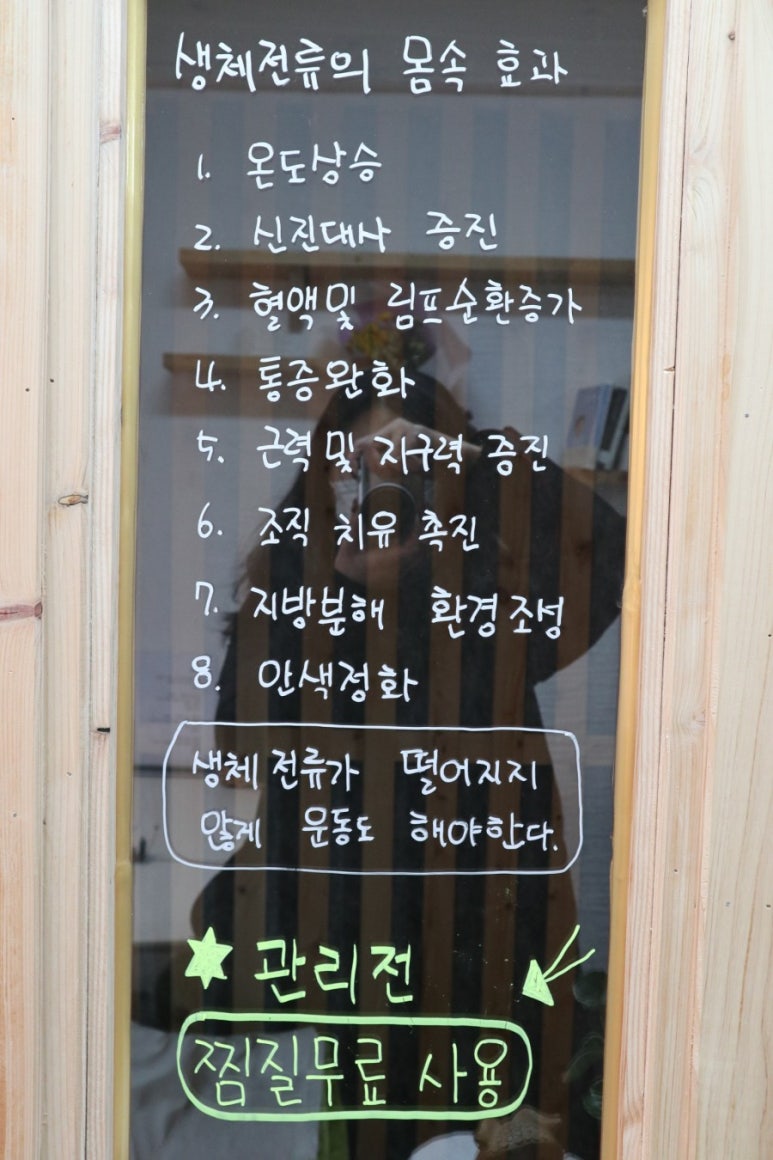 생체전류의 몸속 효과
1. 온도상승
2. 신진대사 증진
3. 혈액및 림프순환증가
4. 통증완화
5. 근력 및 지구력 증진
6. 조직 치유 촉진
7. 지방분해 환경조성
8. 안색정화
생체전류가 떨어지지
않게 운동도 해야한다.
관리전
찜질무료 사용